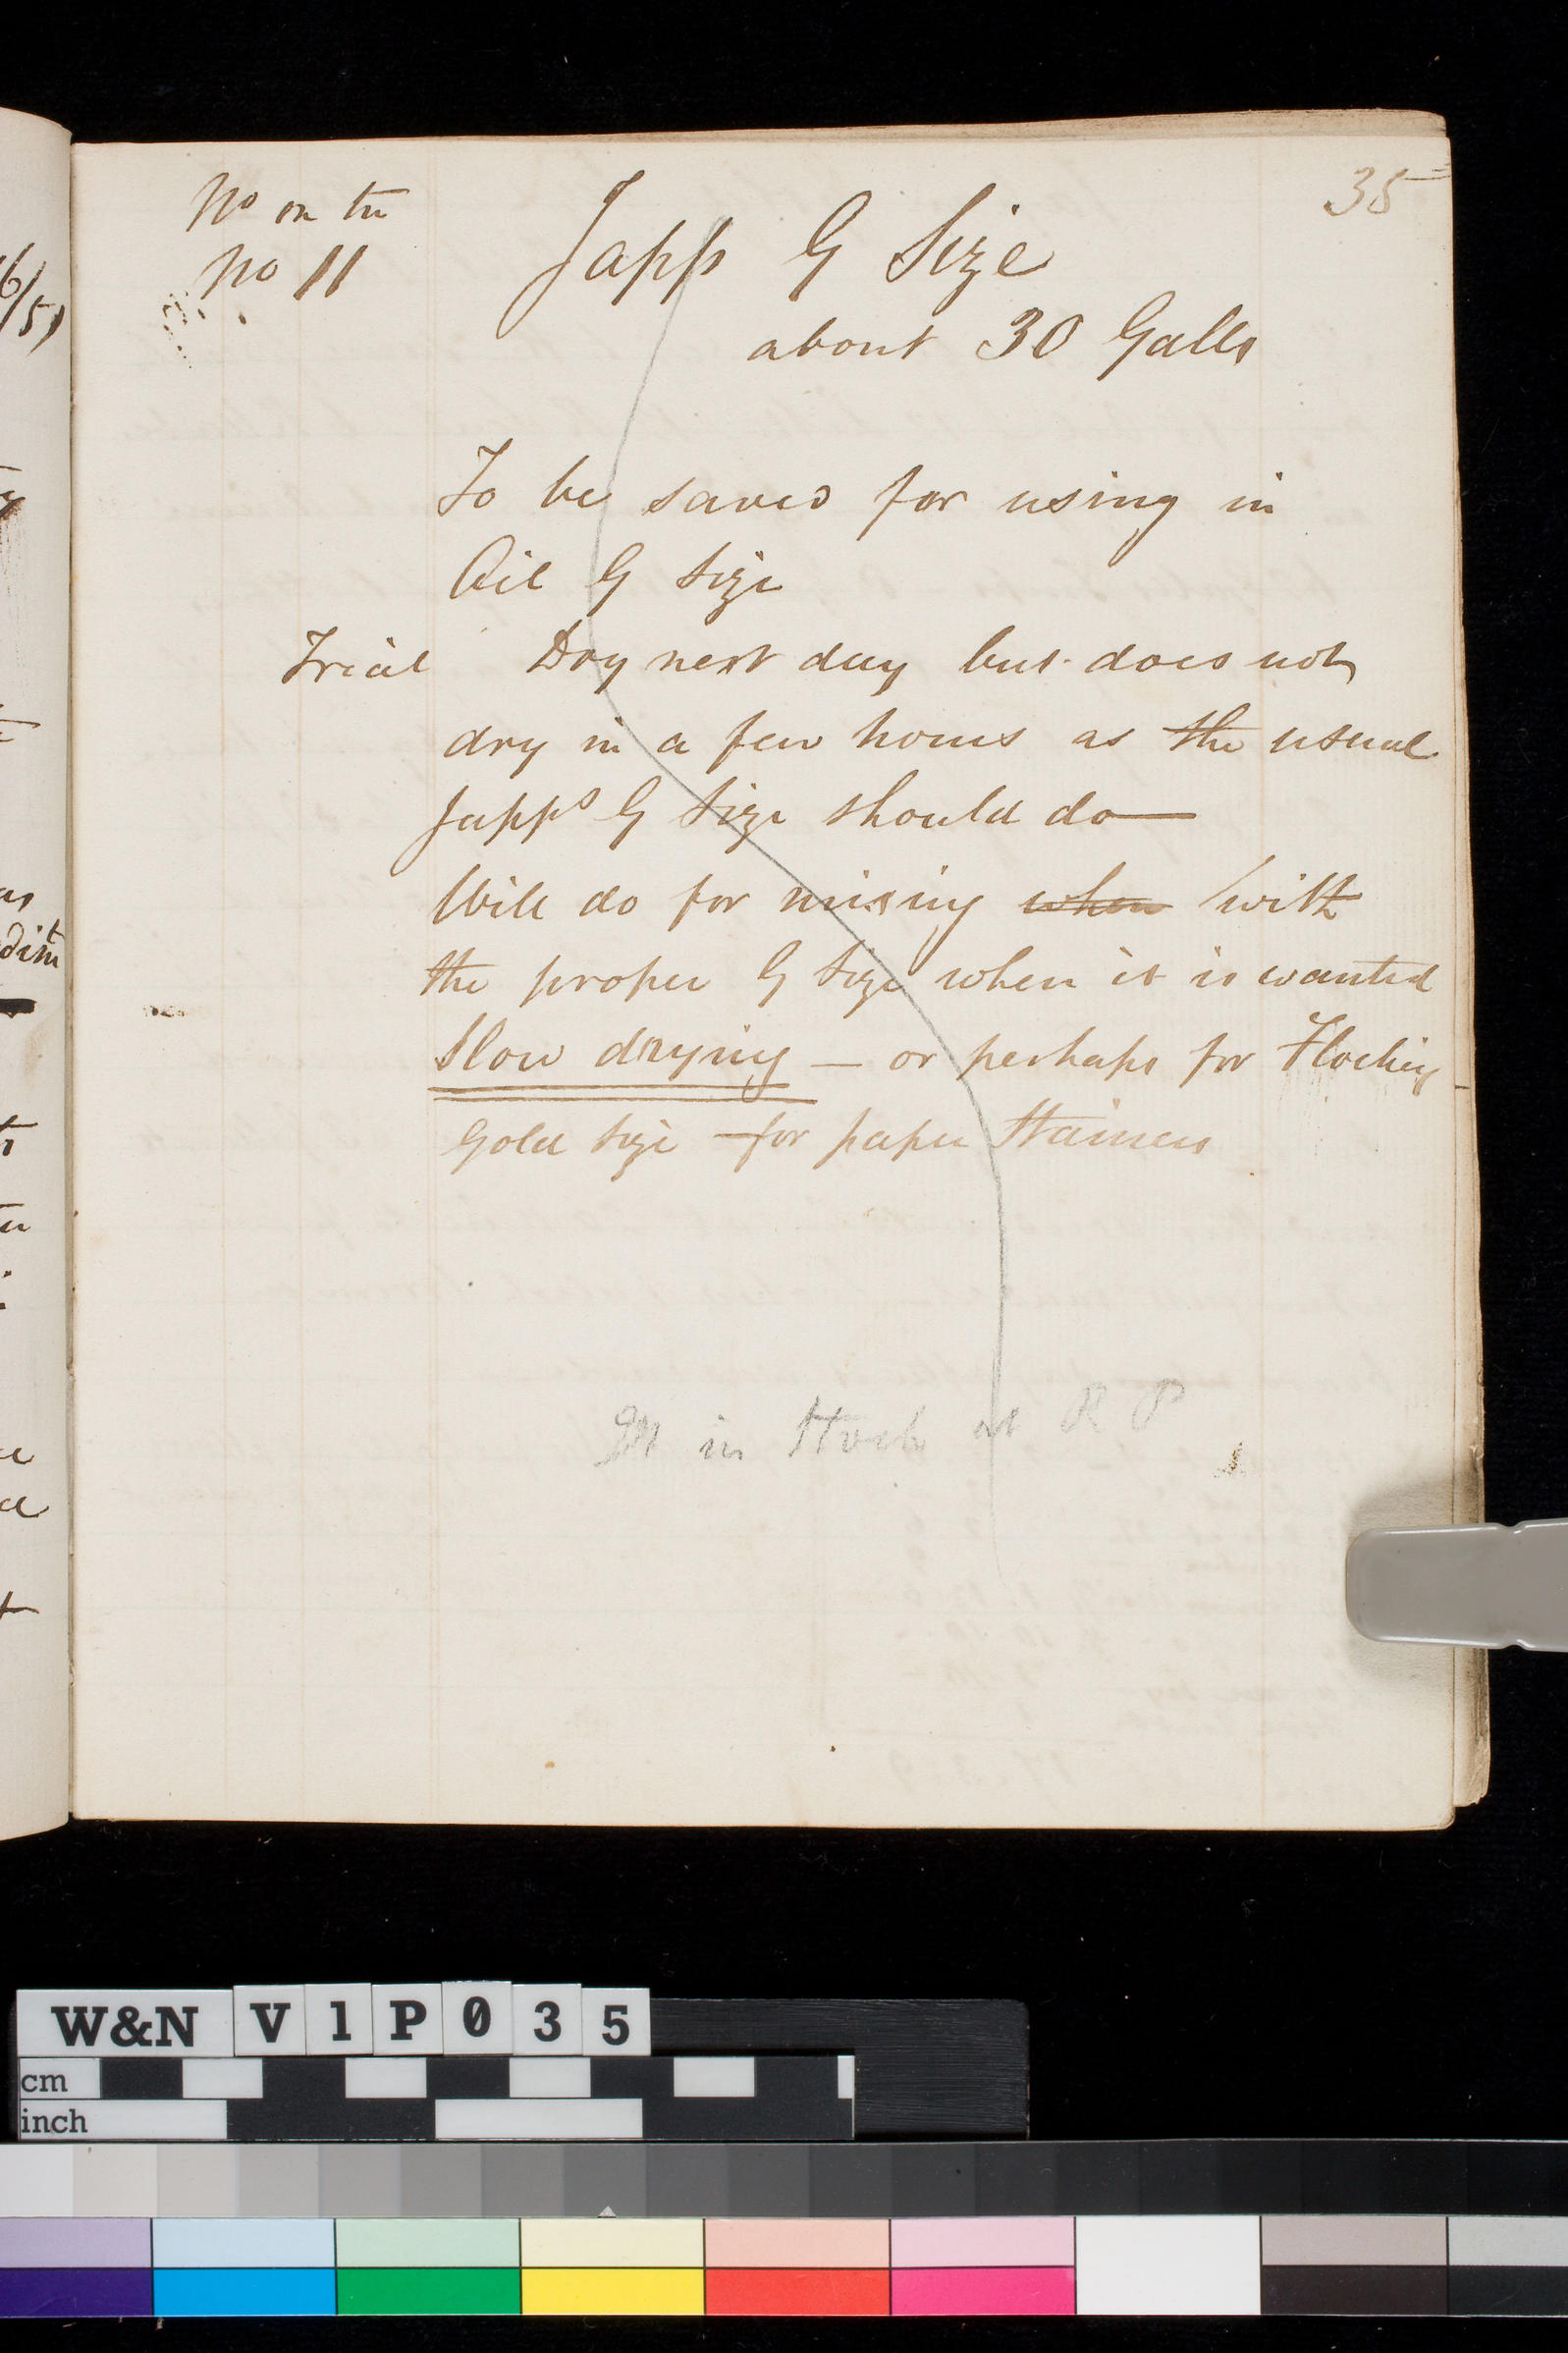 35
No on tin
No 11
Japp G Size
about 30 Galls
To be saved for using in
Oil G Size
Trial Dry next day but does not
dry in a few hours as the usual
Japps G Size should do—
Will do for mixing when with
the proper G Size when it is wanted
Slow drying — or perhaps for Flocking
Gold Size — for paper Stainers
in Stock at R P
6/51
W&N V1P035
cm
inch